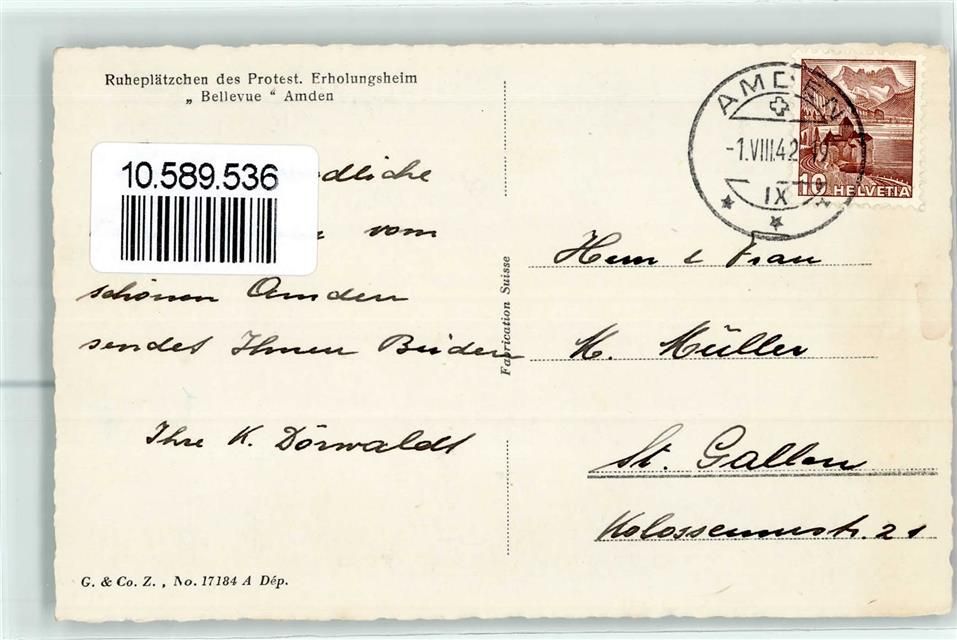 Ruheplätzchen des Protest. Erholungsheim
„ Bellevue “ Amden
10.589.536
dliche
vom
schönen Amden
sendet Ihnen Beiden
Ihre K. Dörwaldt
G. & Co. Z. , No. 17184 A Dép.
Fabrication Suisse
AMDEN
-1.VIII.42.-19
IX
10 HELVETIA
Herrn & Frau
K. Müller
St. Gallen
Kolosseumstr. 21